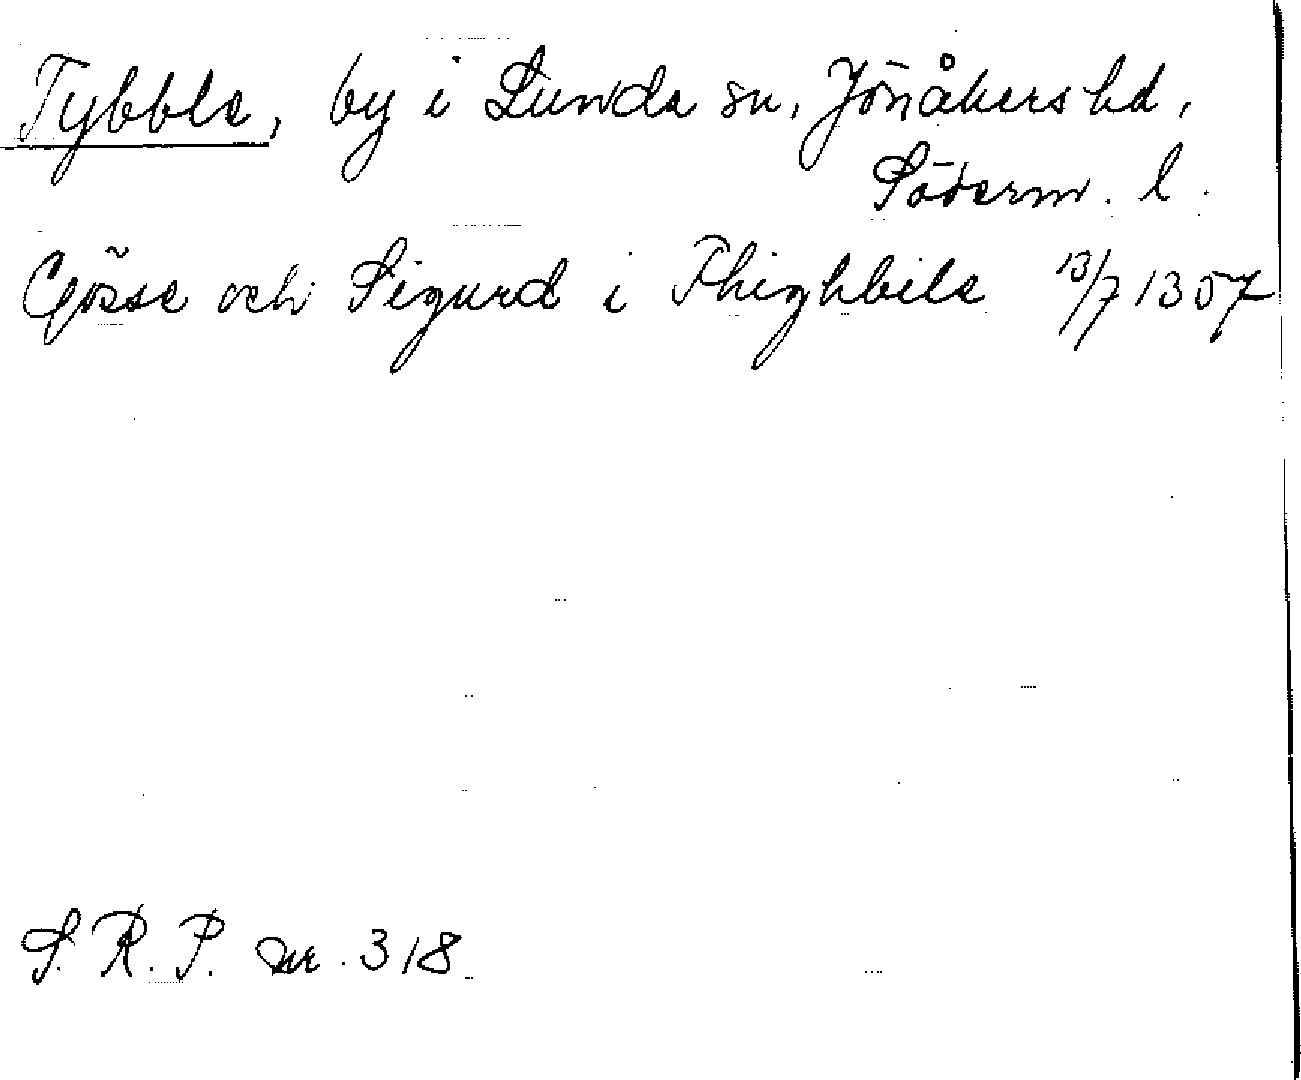 Tybble, by i Lunda sn, Jönåkers hd,
Söderm. l.
Gösse och Sigurd i Thighbile 13/7 1357
S. R. P. nr. 318